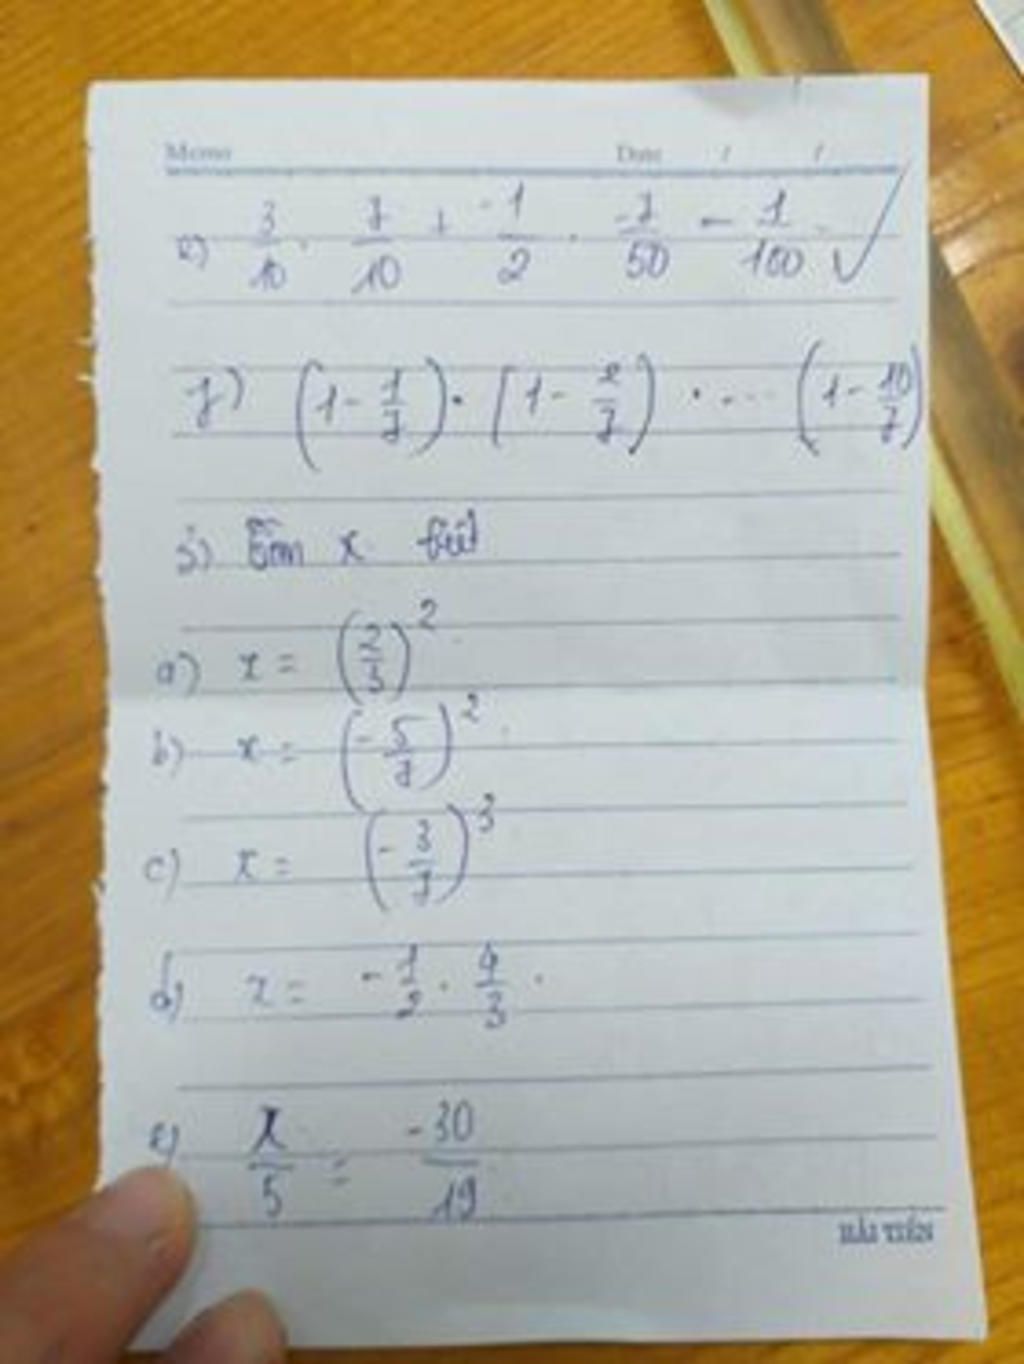 Memo Date / /
e) 3/10 . 7/10 + -1/2 . -7/50 - 1/100
f) (1 - 1/7) . (1 - 2/7) . ... (1 - 10/7)
3) Tìm x biết
a) x = (2/3)^2
b) x = (-5/7)^2
c) x = (-3/7)^3
d) x = -1/2 . 4/3 .
e) x/5 = -30/19
HẢI TIẾN